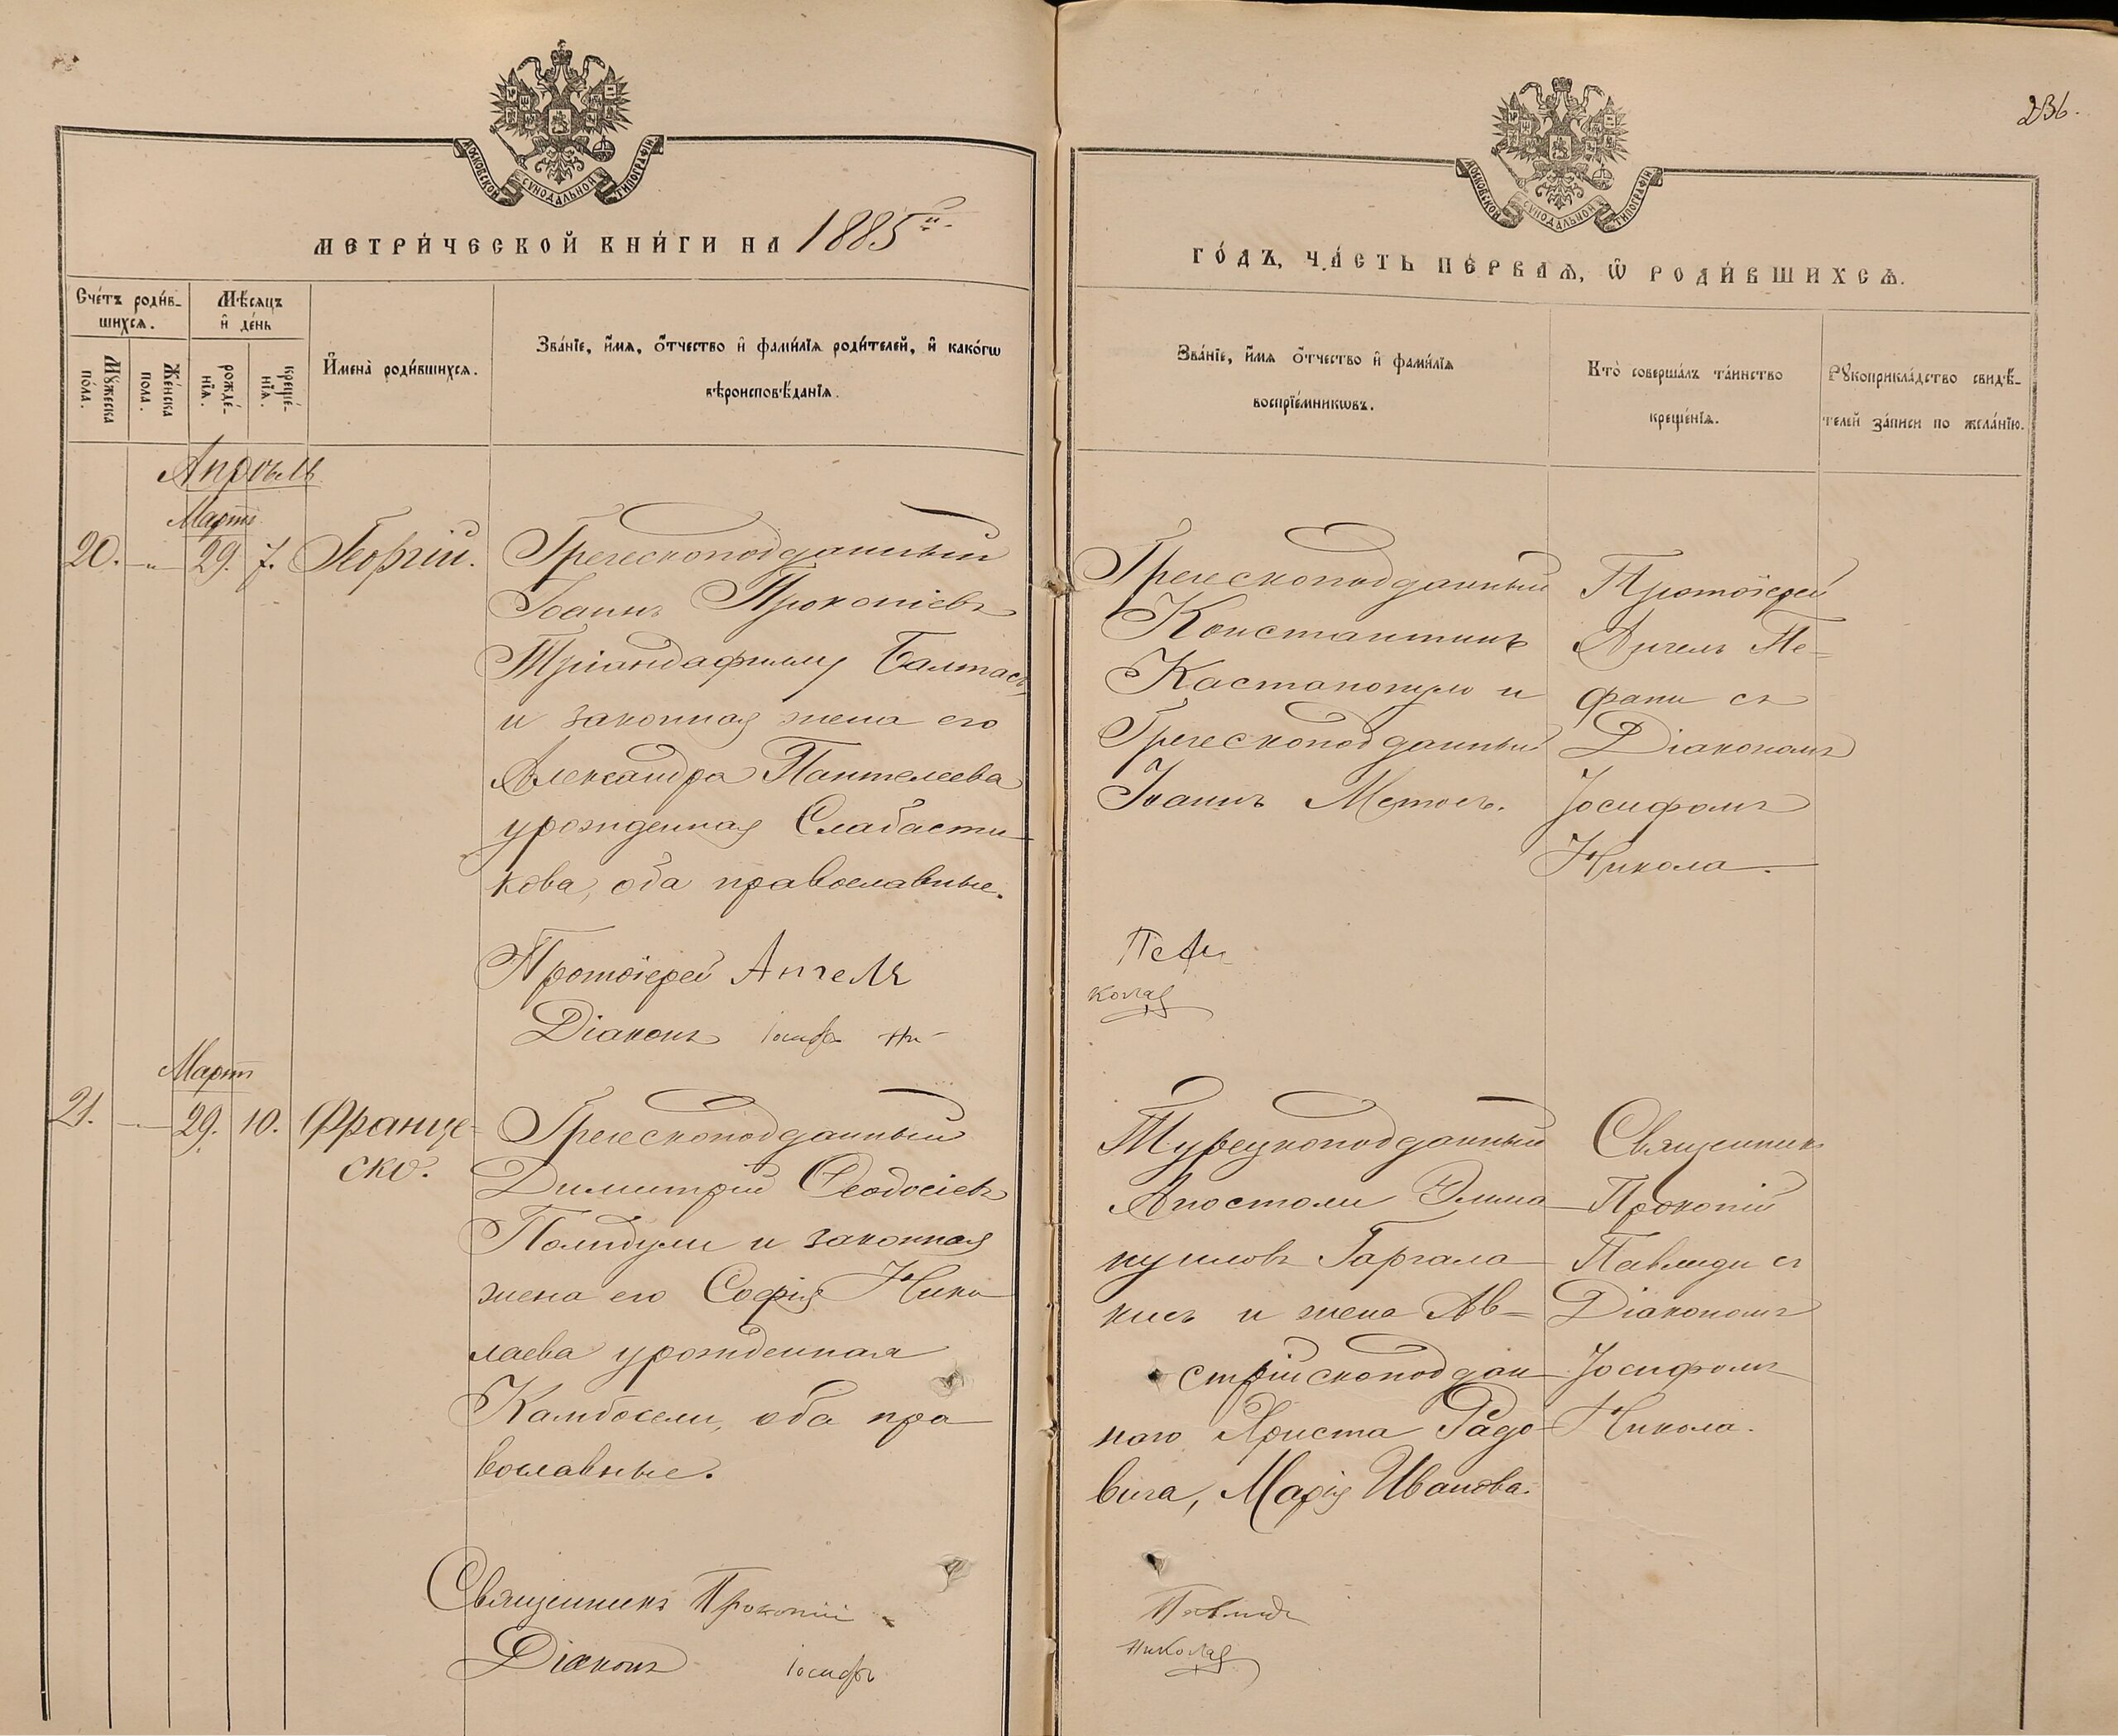 236.
МОСКОВСКОЙ СУНОДАЛЬНОЙ ТИПОГРАФІИ
МОСКОВСКОЙ СУНОДАЛЬНОЙ ТИПОГРАФІИ
МЕТРИ́ЧЕСКОЙ КНИ́ГИ НА 1885й
ГО́ДЪ, ЧА́СТЬ ПЕ́РВАѦ, Ѡ РОДИ́ВШИХСѦ.
Сче́тъ роди́в-
шихсѧ.
Мꙋ́жеска
по́ла.
Же́нска
пола.
Мѣ́сѧцъ
и҆ де́нь
рожде́-
нїѧ.
креще́-
нїѧ.
И҆мена̀ роди́вшихсѧ.
Зва́нїе, и҆́мѧ, ѻ҆́тчество и҆ фами́лїѧ роди́телей, и҆ како́гѡ
вѣроисповѣ́данїѧ.
Зва́нїе, и҆́мѧ ѻ҆́тчество и҆ фами́лїѧ
воспрїе́мникѡвъ.
Кто̀ соверша́лъ та́инство
креще́нїѧ.
Рꙋкоприкла́дство свидѣ́-
телей за́писи по жела́нїю.
Апрѣль
Мартъ
20. -"- 29. 7. Георгій.
Греческоподданный
Іоаннъ Прокопіевъ
Тріандафиллу Балтасъ
и законная жена его
Александра Пантелеева
урожденная Слабасти-
кова, оба православные.
Протоіерей Ангелъ
Діаконъ Іосифъ Ни-
Греческоподданный
Константинъ
Кастанопуло и
Греческоподданный
Іоаннъ Метосъ.
Протоіерей
Ангелъ Пе-
фани съ
Діакономъ
Іосифомъ
Никола.
Пефа
колая
Мартъ
21. -"- 29. 10. Францe-
ско.
Греческоподданный
Димитрій Ѳеодосіевъ
Полидули и законная
жена его Софія Нико-
лаева урожденная
Камбосели, оба пра-
вославные.
Священникъ Прокопій
Діаконъ Іосифъ
Турецкоподданный
Апостоли Элина-
пуиловъ Гаргала-
кисъ и жена Ав-
стрійскоподдан-
ного Христа Радо-
вича, Марія Иванова.
Священникъ
Прокопій
Павлиди съ
Діакономъ
Іосифомъ
Никола.
Павлиди
Николая